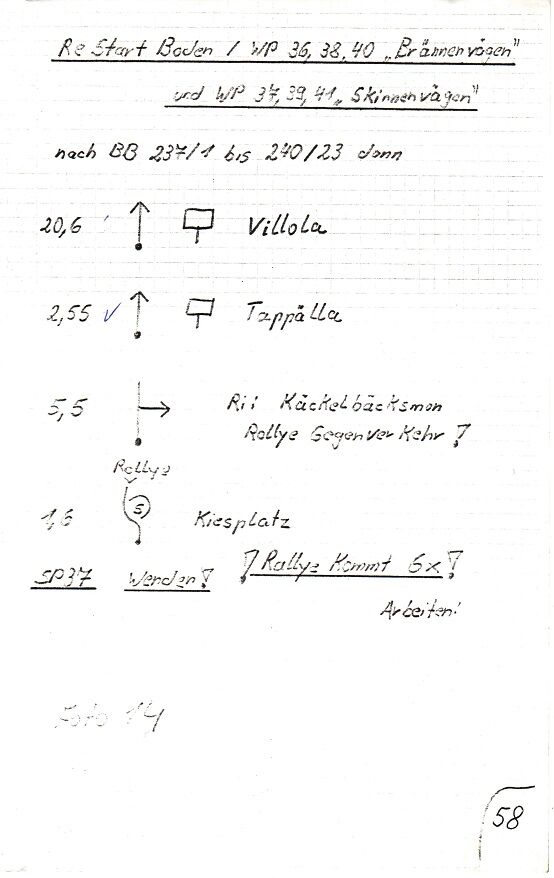 Re Start Boden / WP 36, 38, 40 „Brännenvägen"
und WP 37, 39, 41 „Skinnenvägen"
nach BB 237/1 bis 240/23 dann
20,6 Villola
2,55 ✓ Tappälla
5,5 Ri: Käckelbäcksmon
Rallye Gegenverkehr !
Rallye
1,6 S Kiesplatz
SP37 Wenden! ! Rallye Kommt 6x !
Arbeiten!
Foto 14
58